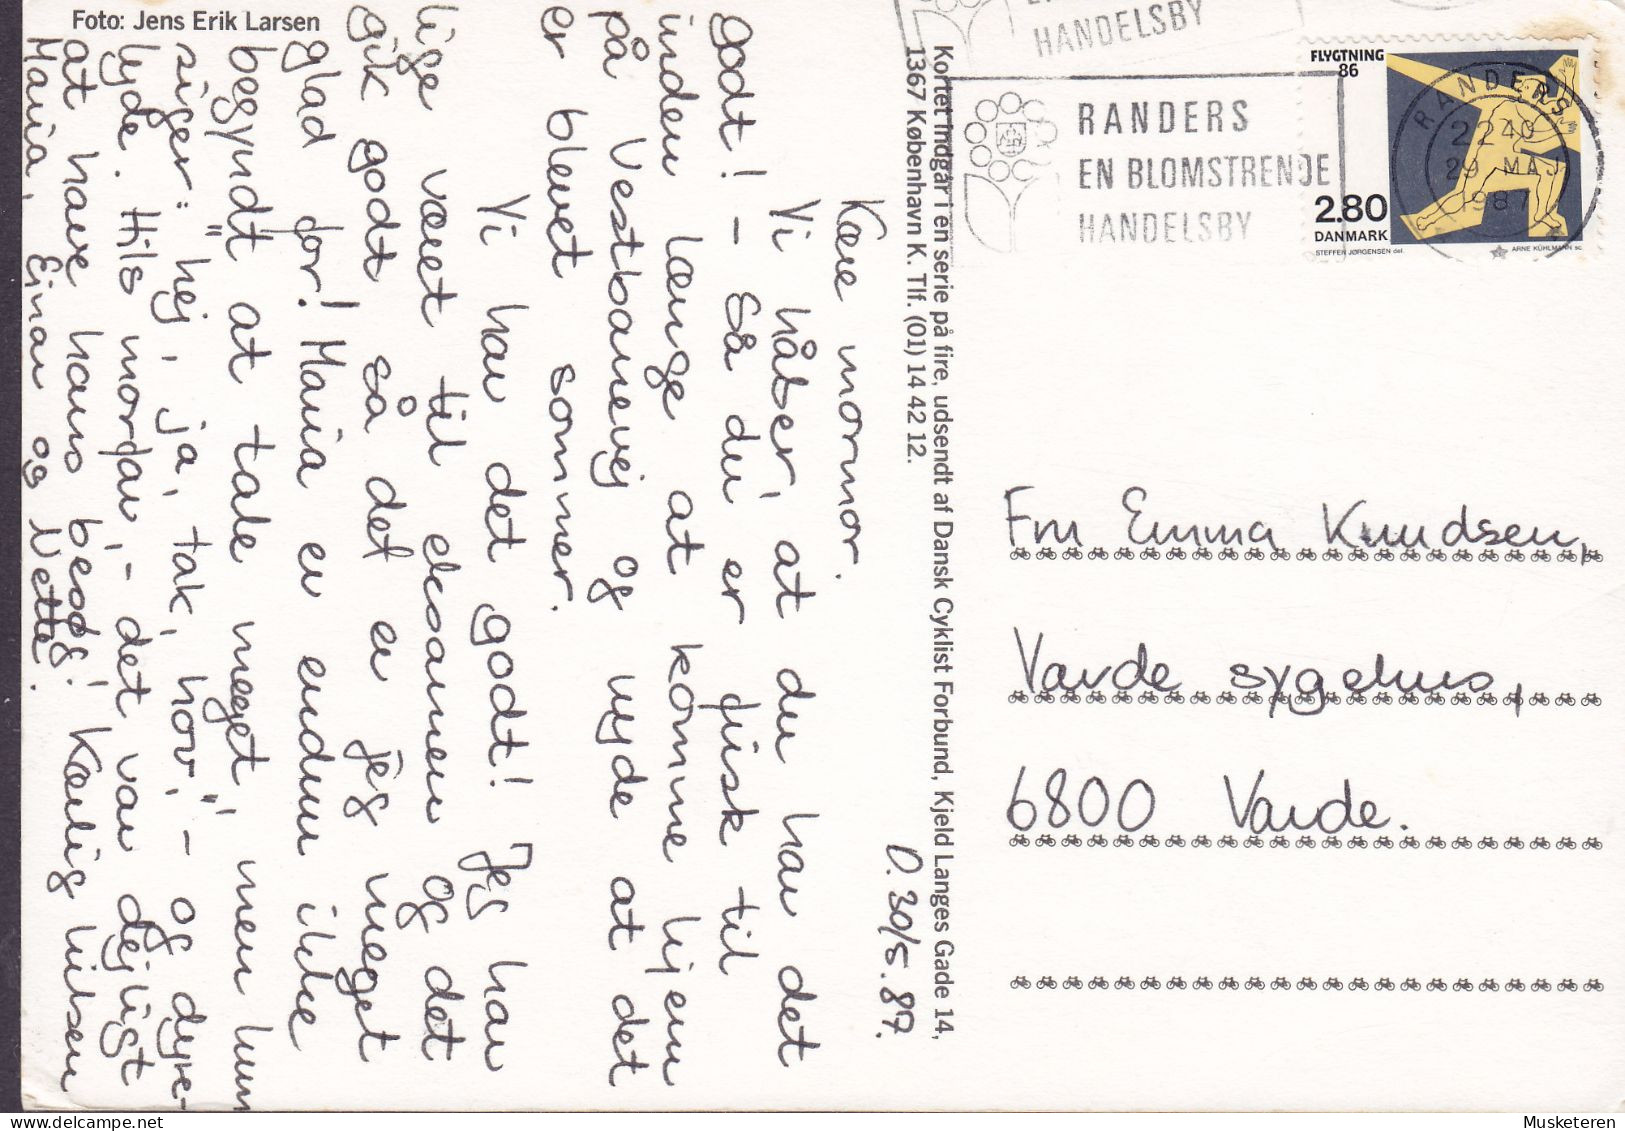 Foto: Jens Erik Larsen
HANDELSBY
RANDERS
EN BLOMSTRENDE
HANDELSBY
FLYGTNING
86
2.80
DANMARK
STEFFEN JØRGENSEN del.
ARNE KÜHLMANN sc.
RANDERS
2240
29 MAJ
1987
Kortet indgår i en serie på fire, udsendt af Dansk Cyklist Forbund, Kjeld Langes Gade 14,
1367 København K. Tlf. (01) 14 42 12.
D. 30/5. 87.
Kære mormor.
Vi håber, at du har det
godt! - Så du er frisk til
inden længe at komme hjem
på Vestbanevej og nyde at det
er blevet sommer.
Vi har det godt! Jeg har
lige været til eksamen og det
gik godt, så det er jeg meget
glad for! Maria er endnu ikke
begyndt at tale meget, men hun
siger: "hej, ja, tak, hov", - og dyre-
lyde. Hils morfar, - det var dejligt
at have hans besøg! Kærlig hilsen
Maria, Einar og Nette.
Fru Emma Knudsen,
Varde sygehus,
6800 Varde.
Musketeren @ Delcampe.net